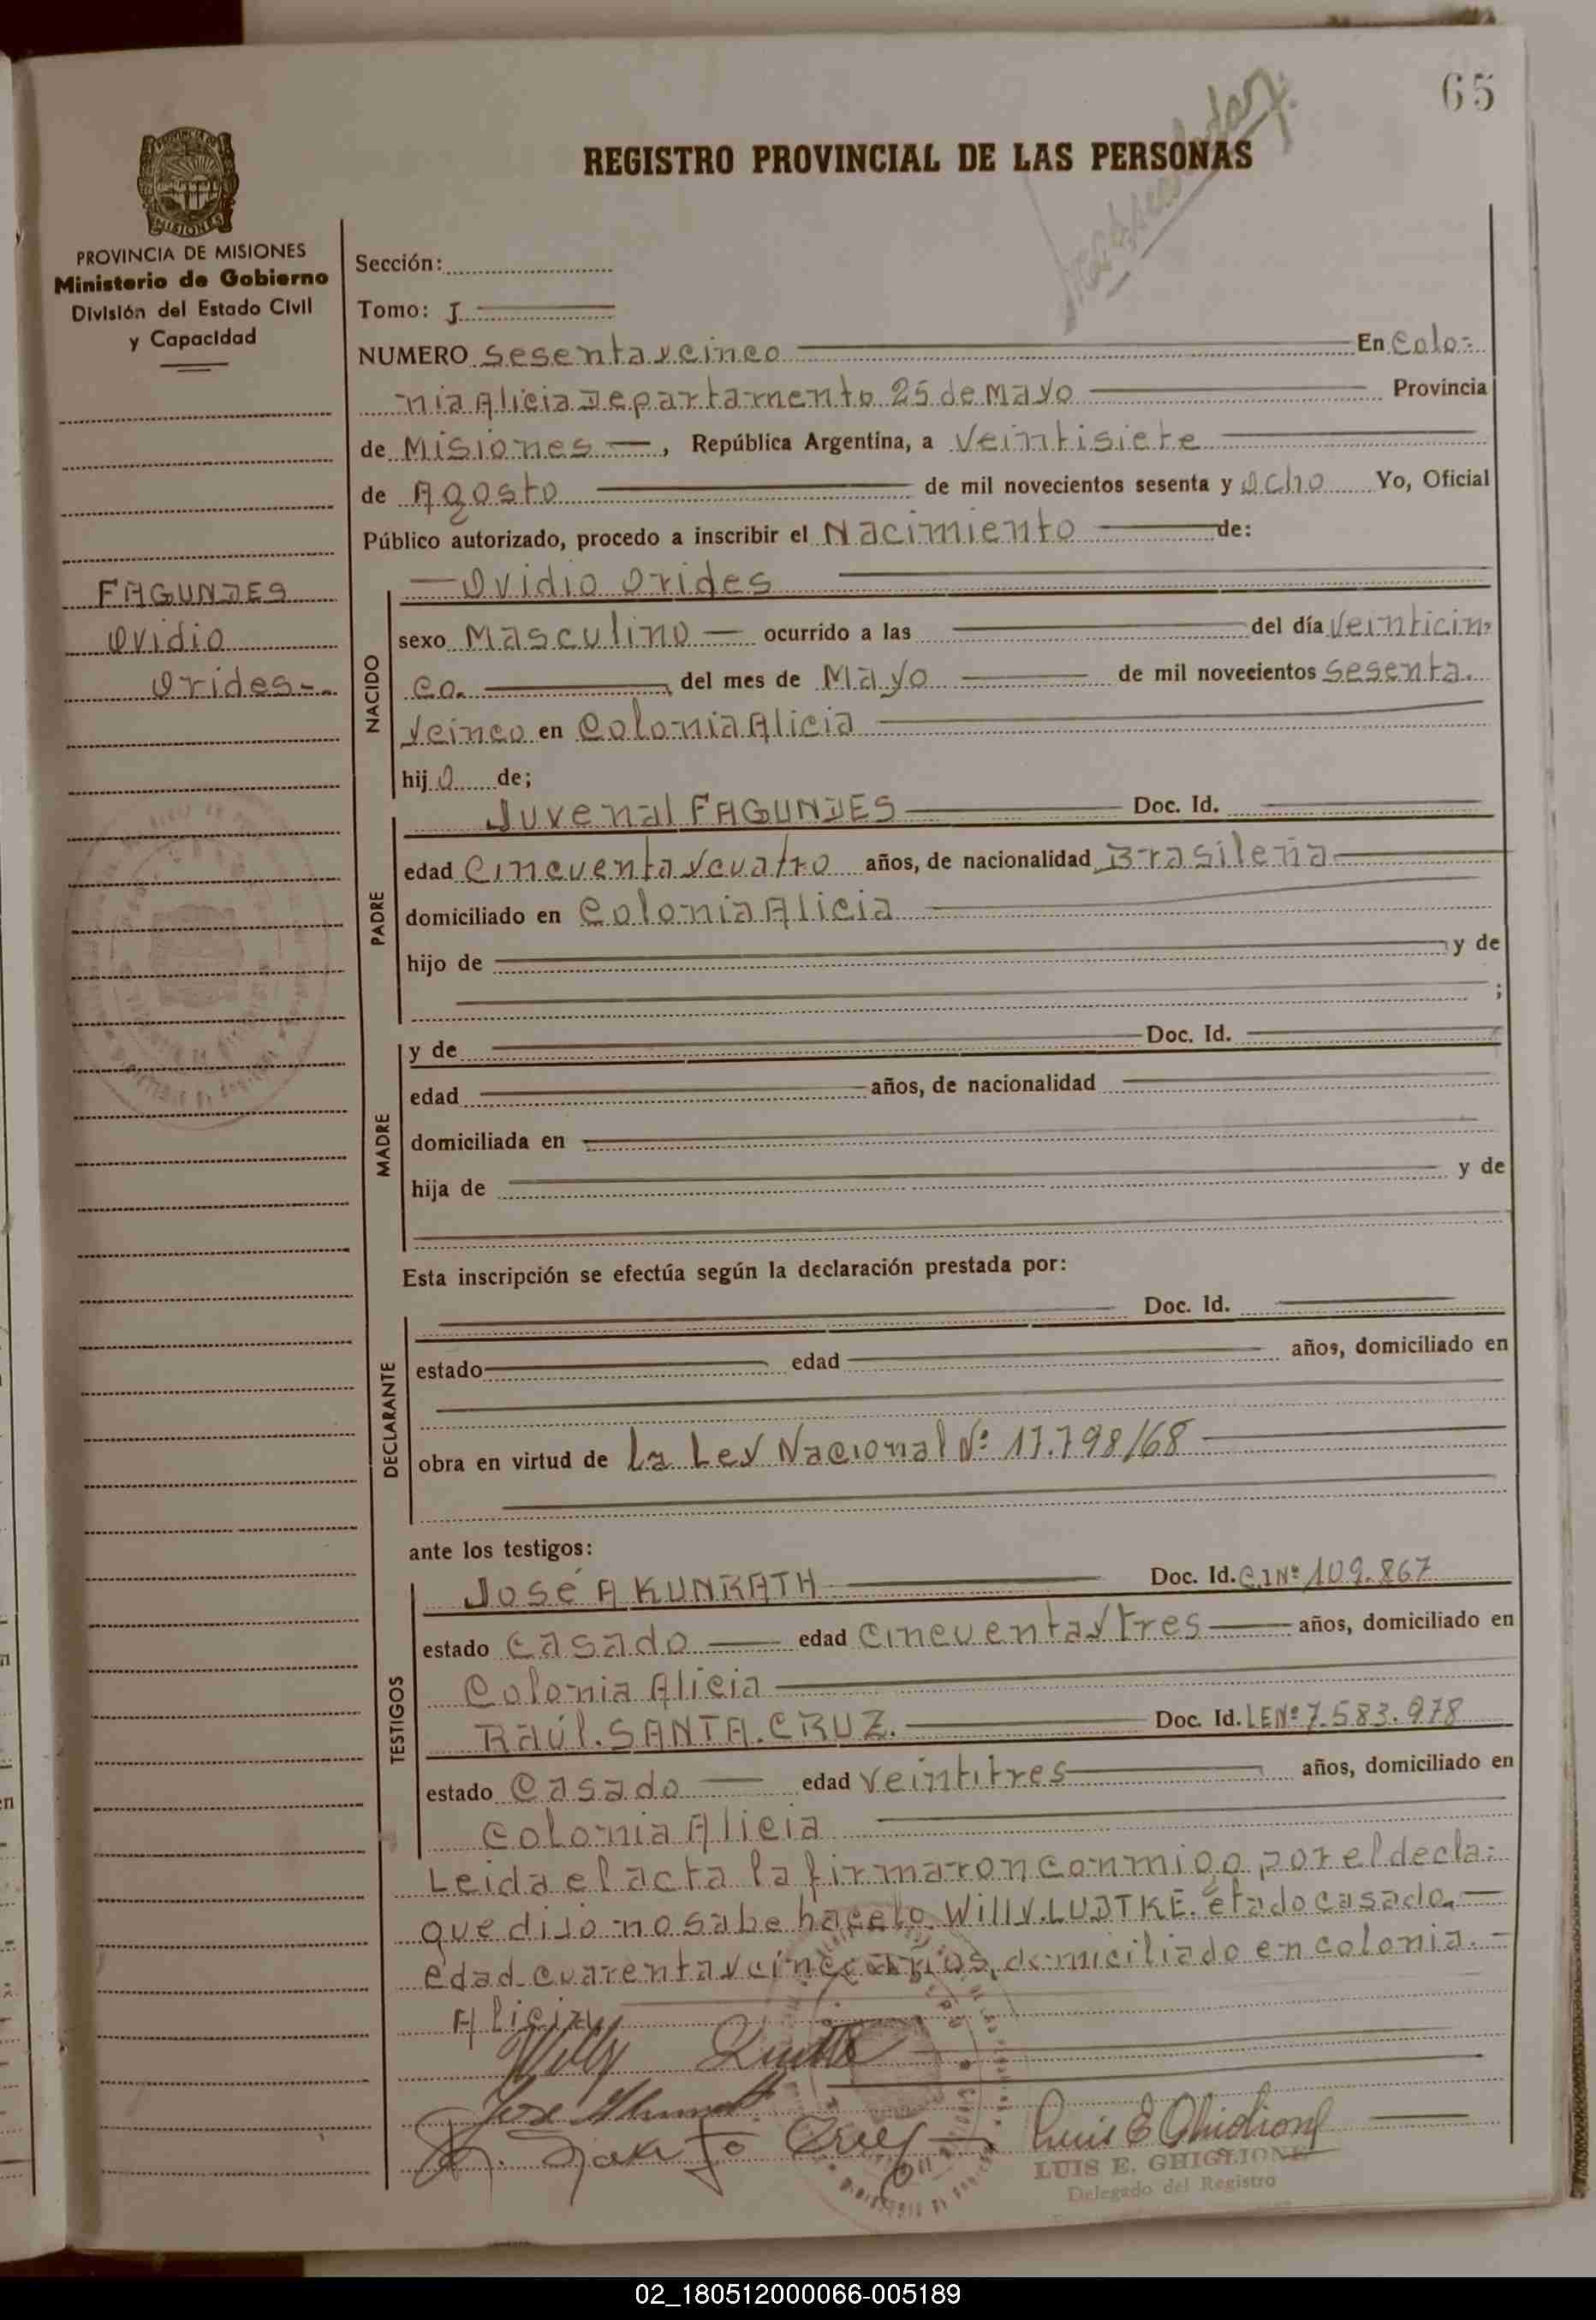 65
REGISTRO PROVINCIAL DE LAS PERSONAS
PROVINCIA DE MISIONES
Ministerio de Gobierno
División del Estado Civil
y Capacidad
FAGUNDES
Ovidio
Orides-.
Sección:
Tomo: I
NUMERO Sesenta y cinco En Colo=
nia Alicia Departamento 25 de Mayo Provincia
de Misiones, República Argentina, a Veintisiete
de Agosto de mil novecientos sesenta y Ocho Yo, Oficial
Público autorizado, procedo a inscribir el Nacimiento de:
NACIDO
Ovidio Orides
sexo Masculino ocurrido a las del día Veinticin=
co. del mes de Mayo de mil novecientos Sesenta.
y cinco en Colonia Alicia
hijo de;
PADRE
Juvenal FAGUNDES Doc. Id.
edad Cincuenta y cuatro años, de nacionalidad Brasileña
domiciliado en Colonia Alicia
hijo de y de
;
MADRE
y de Doc. Id.
edad años, de nacionalidad
domiciliada en
hija de y de
Esta inscripción se efectúa según la declaración prestada por:
DECLARANTE
Doc. Id.
estado edad años, domiciliado en
obra en virtud de la Ley Nacional Nº 17.798/68
ante los testigos:
TESTIGOS
José A KUNRATH Doc. Id. C.I Nº 109.867
estado Casado edad Cincuenta y tres años, domiciliado en
Colonia Alicia
Raúl. SANTA. CRUZ. Doc. Id. LE Nº 7.583.978
estado Casado edad Veintitres años, domiciliado en
Colonia Alicia
Leida el acta la firmaron conmigo por el decla=
que dijo no sabe hacelo. Willy. LUDTKE. etado casado.
edad cuarenta y cinco años, domiciliado en colonia.
Alicia
Willy
R. Santa Cruz
Luis E Ghiglione
LUIS E. GHIGLIONE
Delegado del Registro
02_180512000066-005189